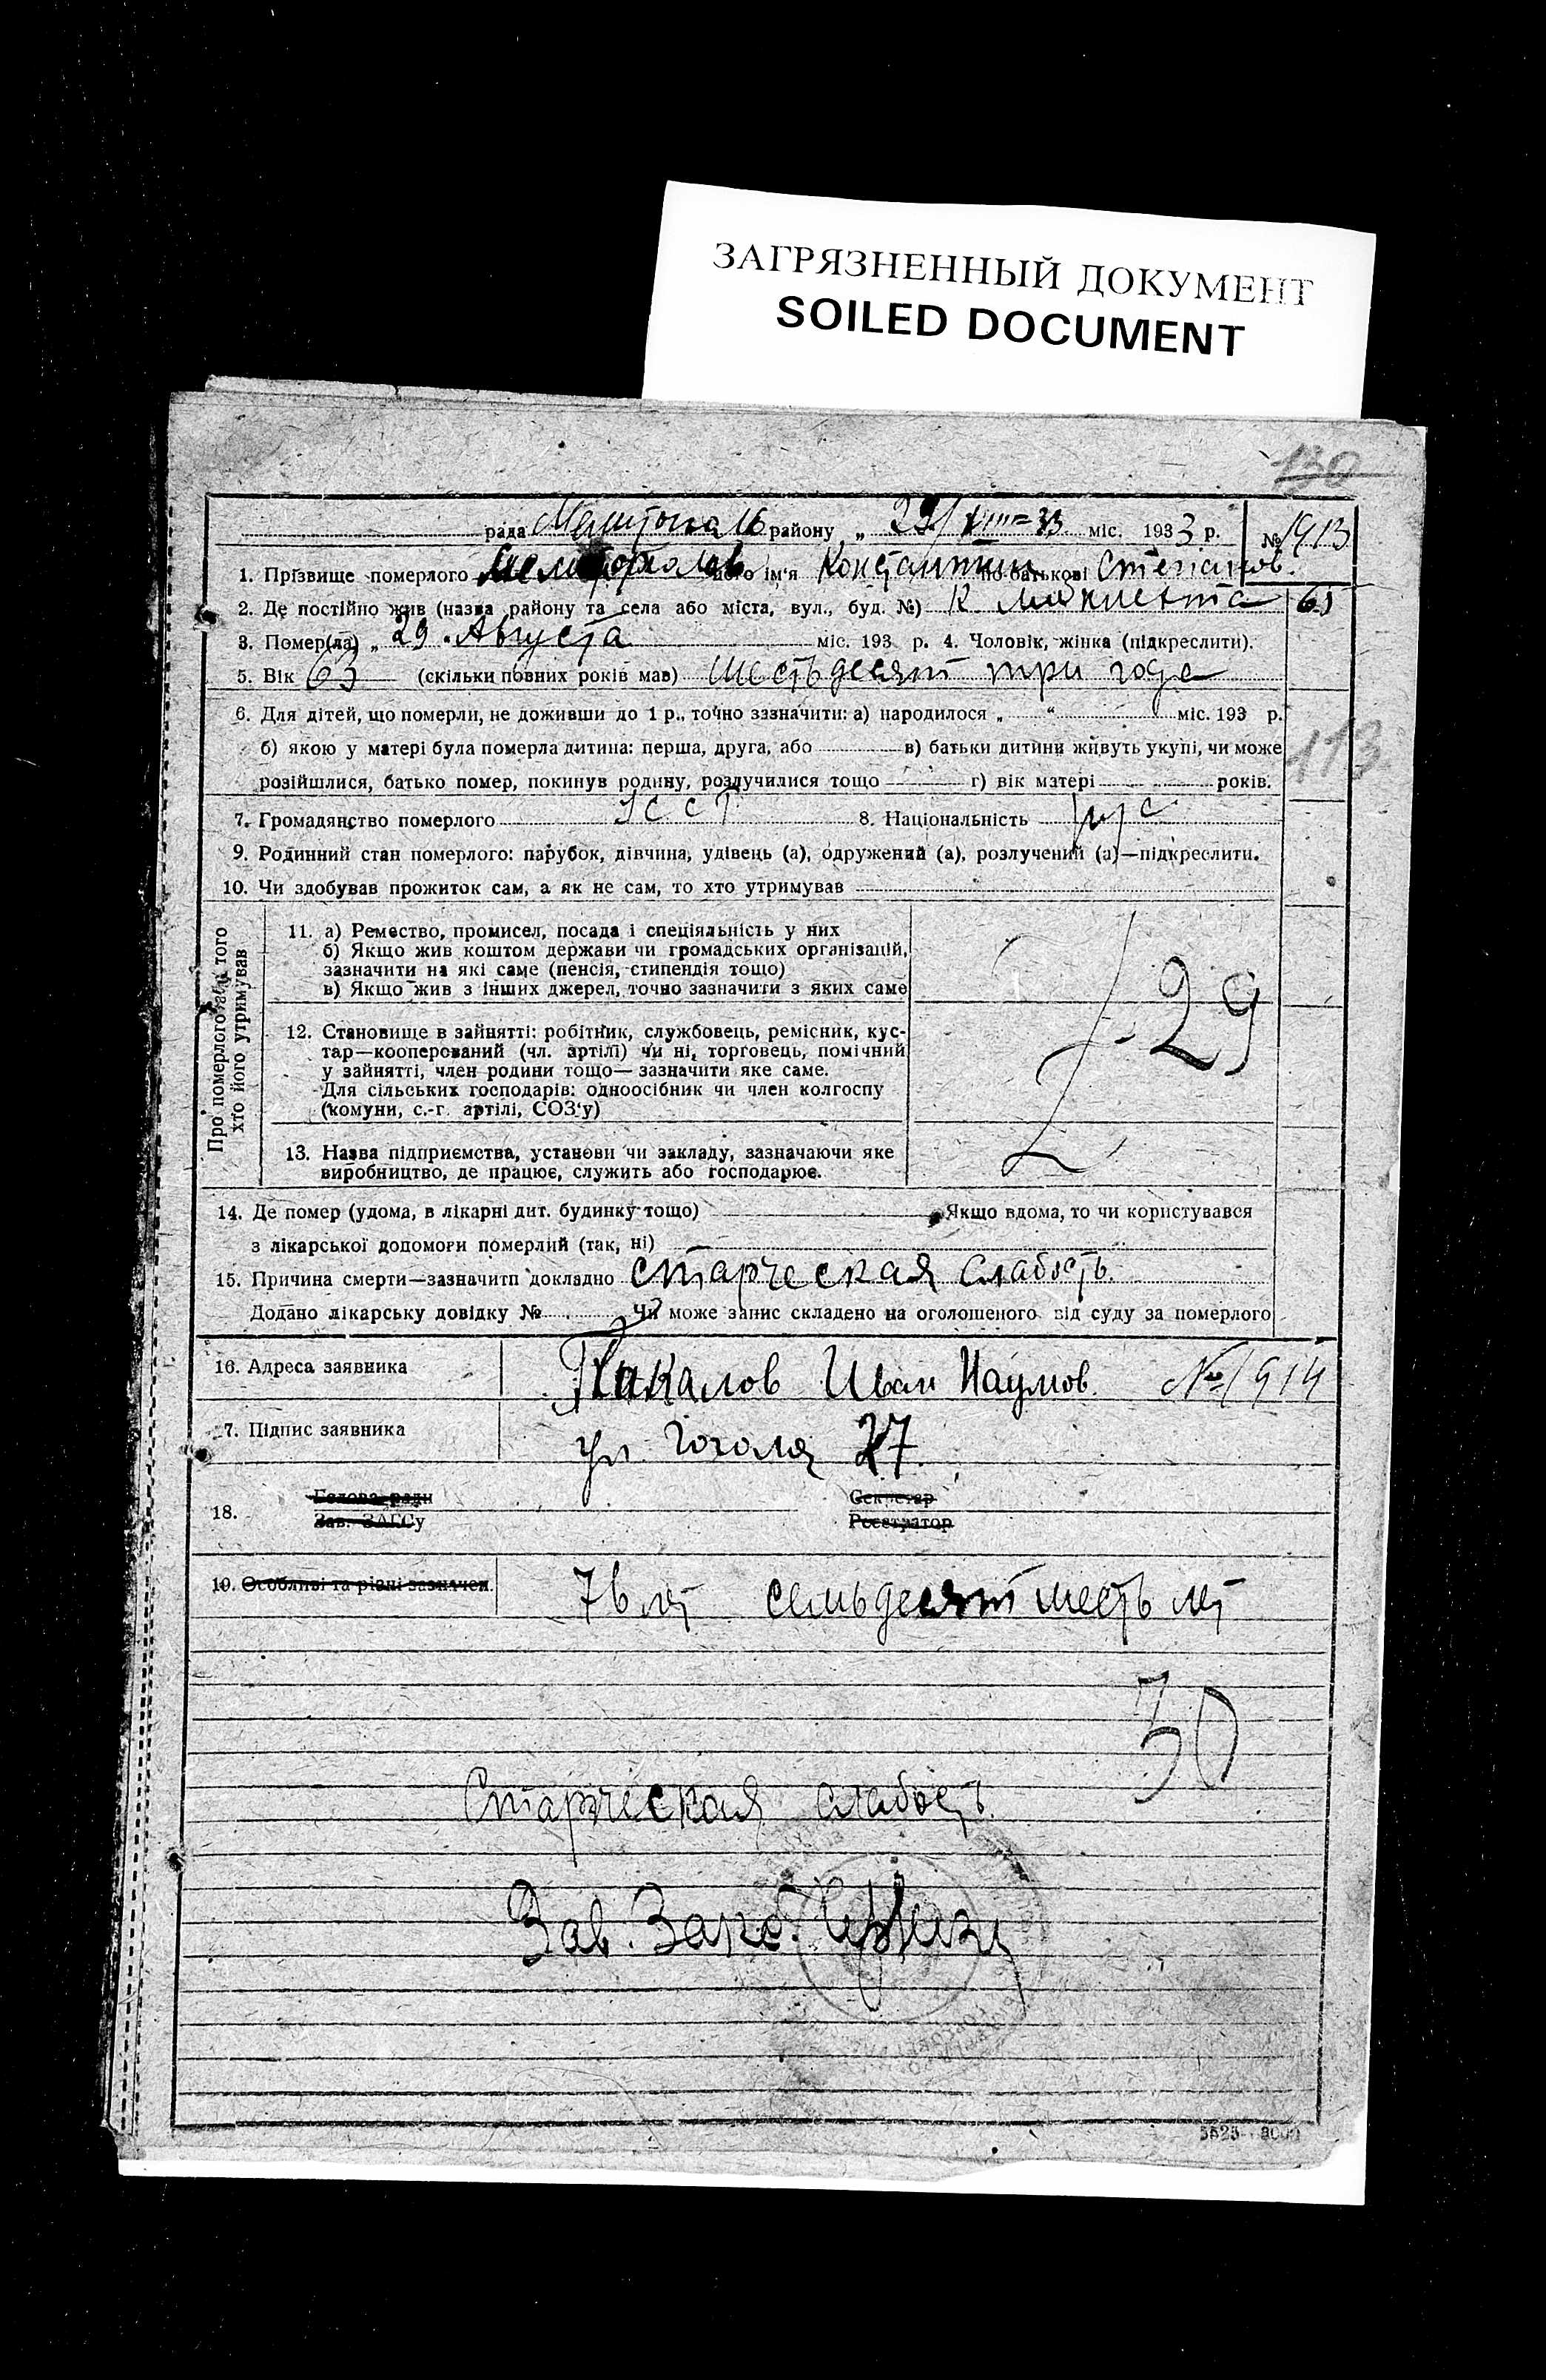 ЗАГРЯЗНЕННЫЙ ДОКУМЕНТ
SOILED DOCUMENT
130
рада району „ 29/VIII-33 міс. 1933 р. № 1913
1. Прізвище померлого його ім'я Константин по батькові Степанов.
2. Де постійно жив (назва району та села або міста, вул., буд. №) К 65
3. Помер(ла) „ 29 „ Августа міс. 193 р. 4. Чоловік, жінка (підкреслити).
5. Вік 63 (скільки повних років мав) шестьдесят три года
6. Для дітей, що померли, не доживши до 1 р., точно зазначити: а) народилося „ “ міс. 193 р.
б) якою у матері була померла дитина: перша, друга, або в) батьки дитини живуть укупі, чи може 113
розійшлися, батько помер, покинув родину, розлучилися тощо г) вік матері років.
7. Громадянство померлого 8. Національність рус
9. Родинний стан померлого: парубок, дівчина, удівець (а), одружений (а), розлучений (а)—підкреслити.
10. Чи здобував прожиток сам, а як не сам, то хто утримував
Про померлого або того
хто його утримував
11. а) Ремество, промисел, посада і спеціяльність у них
б) Якщо жив коштом держави чи громадських організацій,
зазначити на які саме (пенсія, стипендія тощо)
в) Якщо жив з інших джерел, точно зазначити з яких саме
29
12. Становище в зайнятті: робітник, службовець, ремісник, кус-
тар—кооперований (чл. артілі) чи ні, торговець, помічний
у зайнятті, член родини тощо— зазначити яке саме.
Для сільських господарів: одноосібник чи член колгоспу
(комуни, с.-г. артілі, СОЗ'у)
13. Назва підприємства, установи чи закладу, зазначаючи яке
виробництво, де працює, служить або господарює.
14. Де помер (удома, в лікарні дит. будинку тощо) Якщо вдома, то чи користувався
з лікарської допомоги померлий (так, ні)
15. Причина смерти—зазначити докладно старческая слабость.
Додано лікарську довідку № Чи може запис складено на оголошеного від суду за померлого
16. Адреса заявника Иван Наумов. № 1914
7. Підпис заявника ул Гоголя 27
18. Голова ради Секретар
Зав. ЗАГСу Реєстратор
19. Особливі та різні зазначен. 76 лет семьдесят шесть лет
30
Старческая слабость.
Зав. Загс.
5525 8000